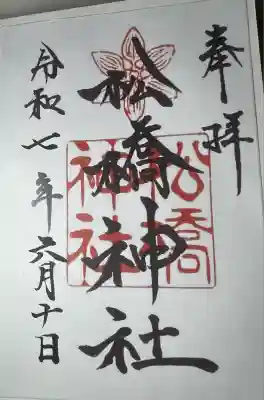 奉拝
松橋神社
令和七年六月十日
松橋
神社